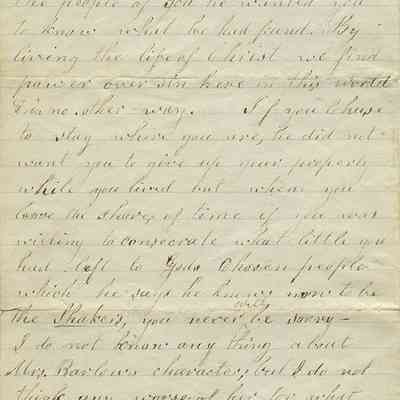 the people of God he wanted you
to know what he had found. By
living the life of Christ we find
power over sin here in this world
in no other way. If you Chuse
to stay where you are, he did not
want you to give up your property
while you lived but when you
leave the shores of time if you was
willing to consecrate what little you
had left to Gods Chosen people
which he says he knows now to be
the Shakers, you never will be sorry—
I do not know any thing about
Mrs. Barlows character, but I do not
think any worse of her for what